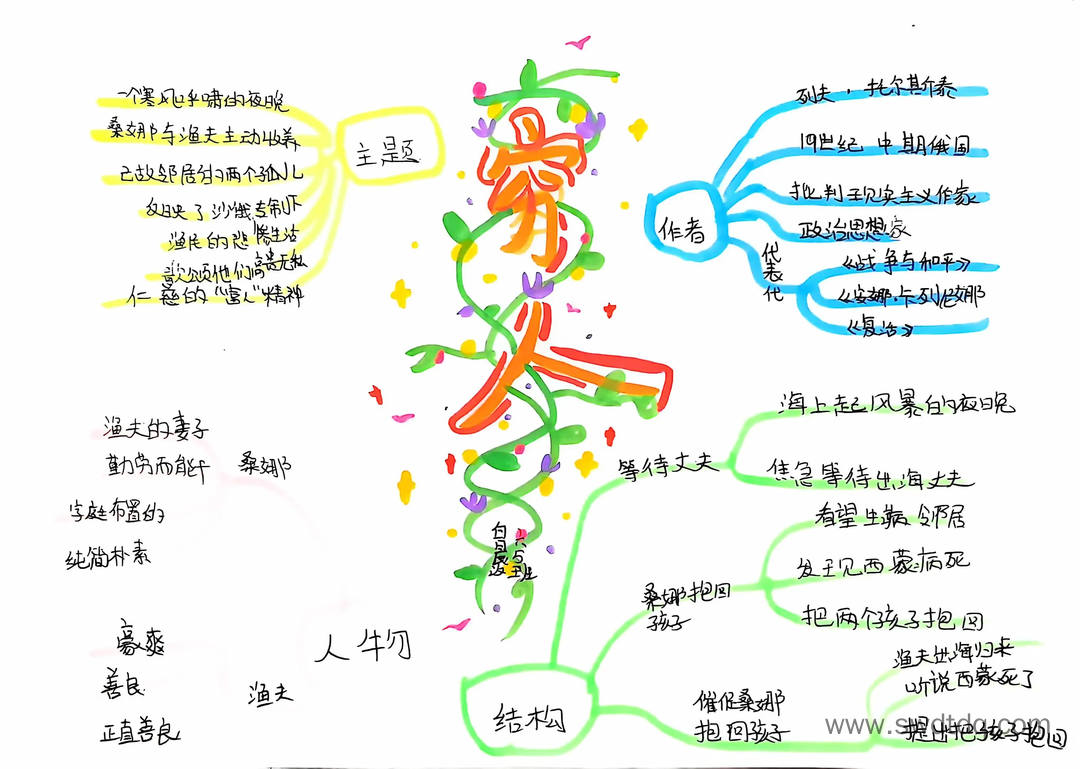 一个寒风呼啸的夜晚
桑娜与渔夫主动收养
已故邻居的两个孤儿
反映了沙俄专制下
渔民的悲惨生活
歌颂他们高尚无私
仁慈的“富人”精神
主题
穷人
列夫·托尔斯泰
19世纪中期俄国
批判现实主义作家
政治思想家
作者
代表代
《战争与和平》
《安娜·卡列尼娜
《复活》
渔夫的妻子
勤劳而能干
桑娜
家庭布置的
纯简朴素
人物
豪爽
善良
正直善良
渔夫
六与班
等待丈夫
海上起风暴的夜晚
焦急等待出海丈夫
桑娜抱回
孩子
看望生病邻居
发现西蒙病死
把两个孩子抱回
结构
催促桑娜
抱回孩子
渔夫出海归来
听说西蒙死了
提出把孩子抱回